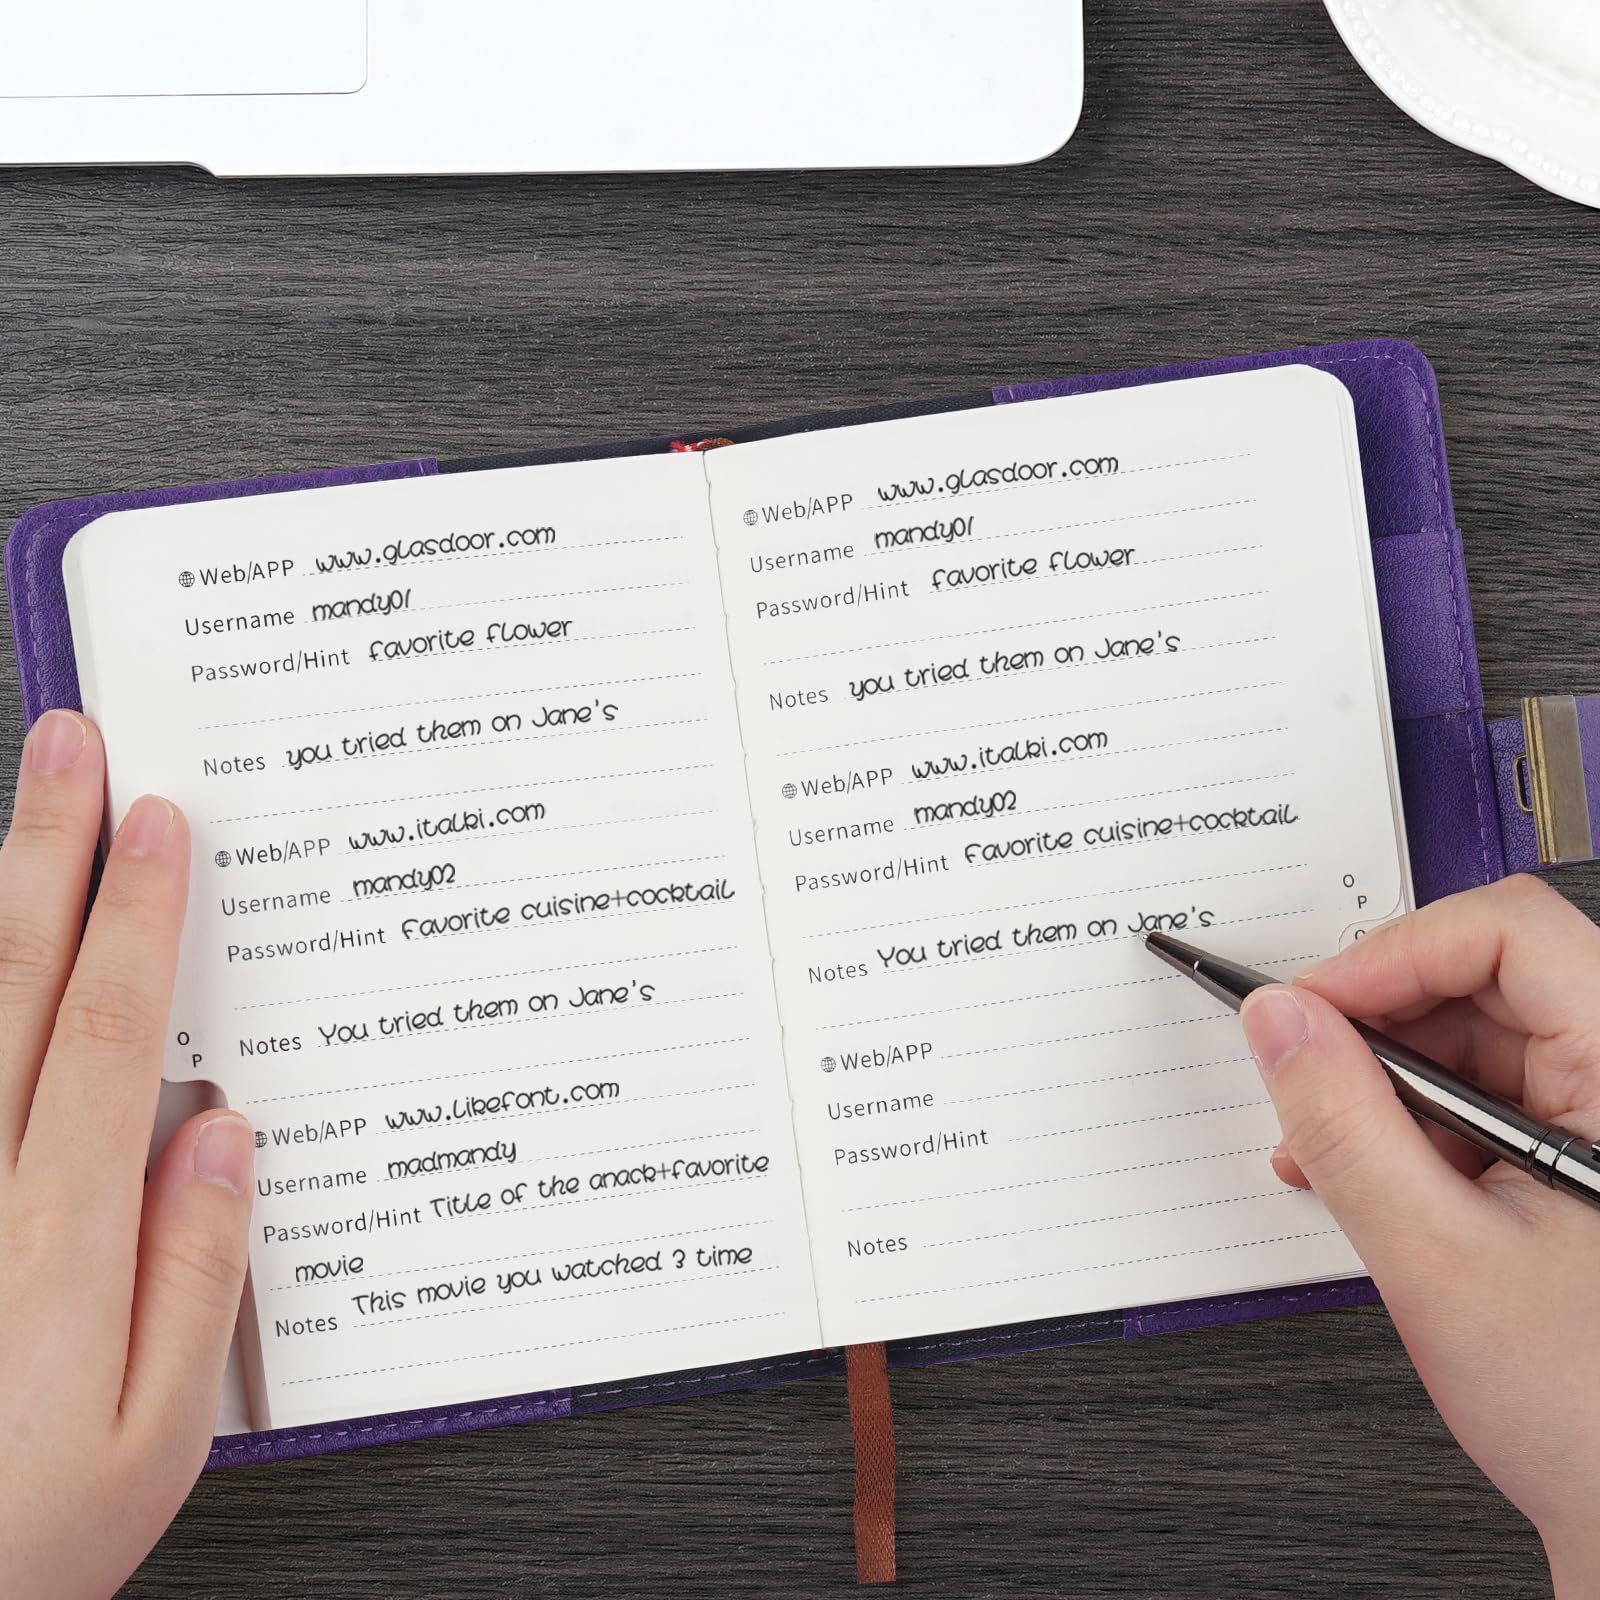 Web/APP www.glasdoor.com
Username mandy01
Password/Hint favorite flower
Notes you tried them on Jane's
Web/APP www.italki.com
Username mandy02
Password/Hint Favorite cuisine+cocktail
Notes You tried them on Jane's
Web/APP www.likefont.com
Username madmandy
Password/Hint Title of the anack+favorite
movie
Notes This movie you watched 3 time
O
P
Web/APP www.glasdoor.com
Username mandy01
Password/Hint favorite flower
Notes you tried them on Jane's
Web/APP www.italki.com
Username mandy02
Password/Hint Favorite cuisine+cocktail
Notes You tried them on Jane's
Web/APP
Username
Password/Hint
Notes
O
P